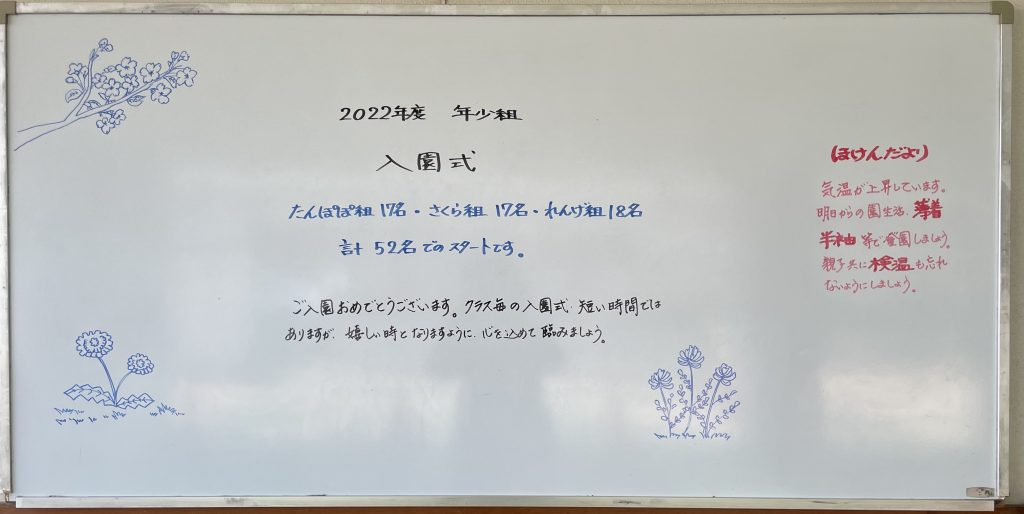 2022年度 年少組
入園式
たんぽぽ組 17名・さくら組 17名・れんげ組 18名
計 52名でのスタートです。
ご入園おめでとうございます。クラス毎の入園式、短い時間では
ありますが、嬉しい時となりますように、心を込めて臨みましょう。
ほけんだより
気温が上昇しています。
明日からの園生活、薄着
半袖等で登園しましょう。
親子共に検温も忘れ
ないようにしましょう。